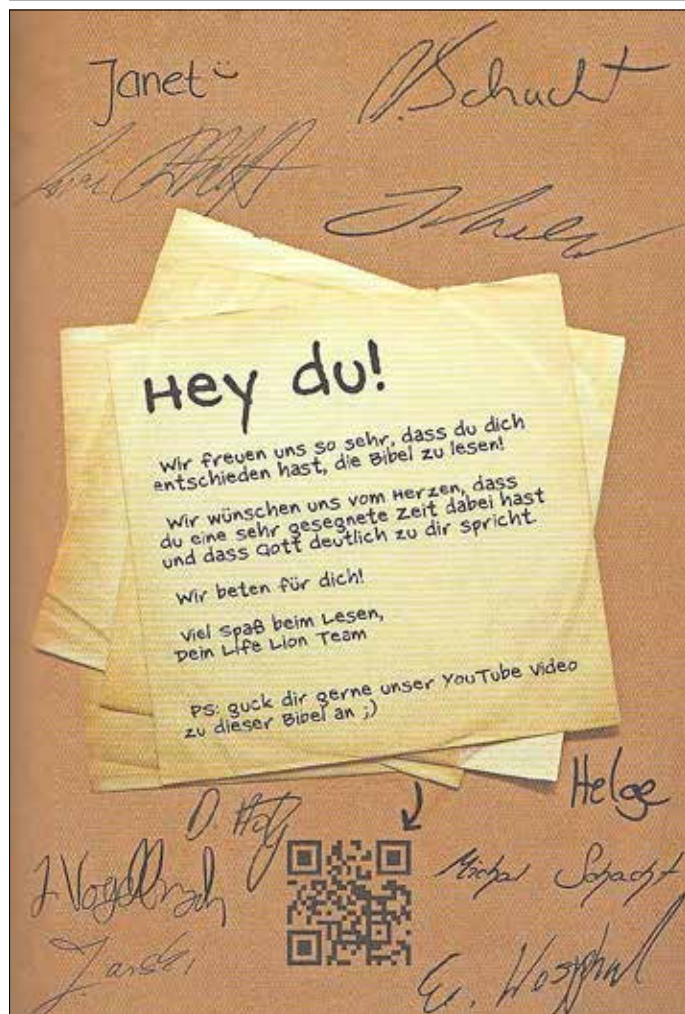 Janet
Schacht
Hey du!
Wir freuen uns so sehr, dass du dich
entschieden hast, die Bibel zu lesen!
Wir wünschen uns vom Herzen, dass
du eine sehr gesegnete Zeit dabei hast
und dass Gott deutlich zu dir spricht.
Wir beten für dich!
Viel Spaß beim Lesen,
Dein Life Lion Team
PS: guck dir gerne unser YouTube Video
zu dieser Bibel an ;)
Helge
J. Vogelbruch
Schacht
E. Westphal